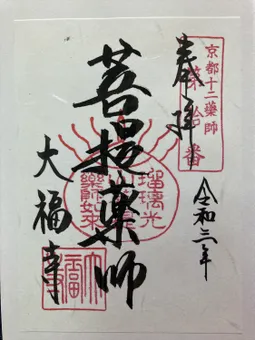 京都十二薬師
第拾番
奉拝
令和三年
菩提薬師
瑠璃光
薬師如来
大福寺